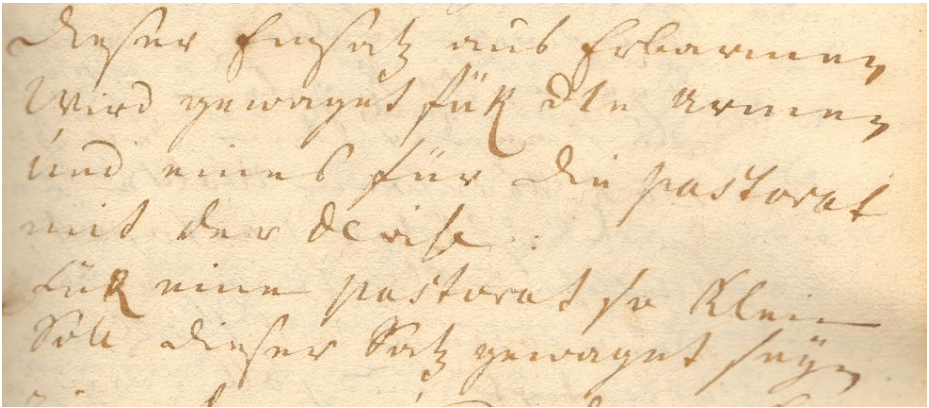 Dieser Einsatz aus Erbarmen
Wird gewaget für die Armen
und eines für die pastorat
mit der Devise:
Für eine pastorat so klein
Soll dieser Satz gewaget seÿn